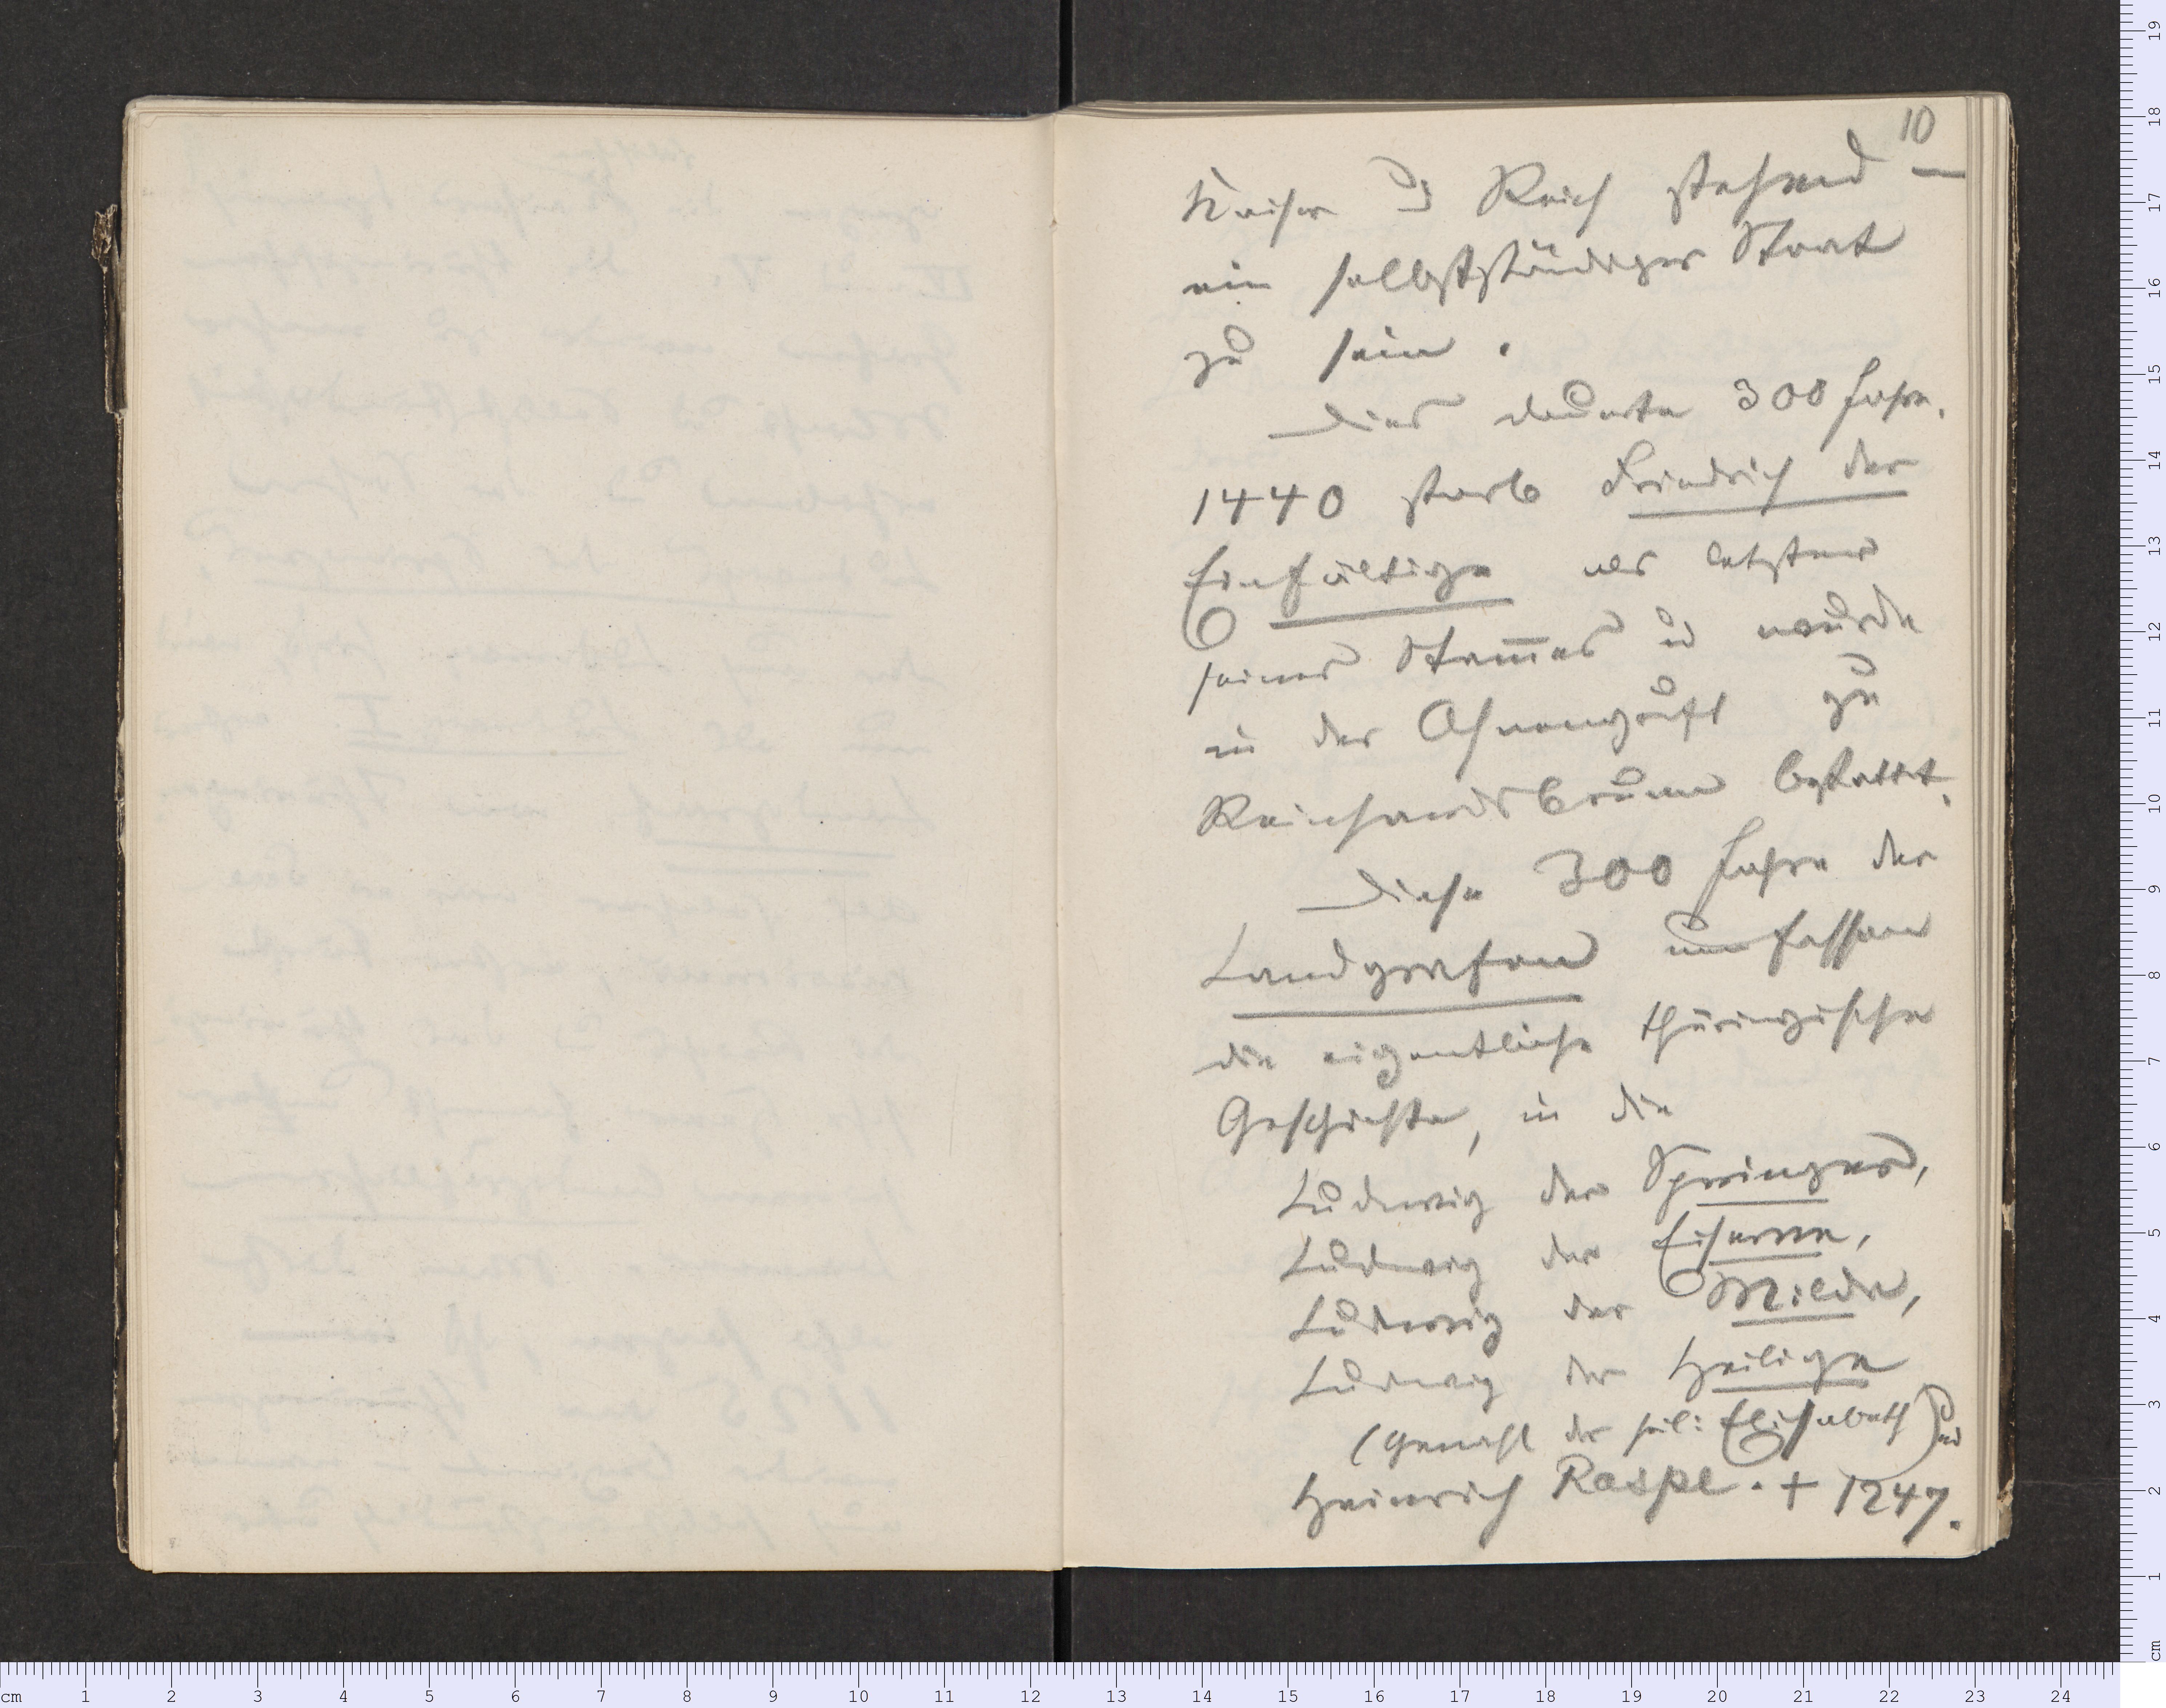 10
Kaiser u Reich stehend –
ein selbstständiger Staat
zu sein.
Dies dauerte 300 Jahre.
1440 starb Friedrich der
Einfältige als letzter
seines Stam̅es u wurde
in der Ahnengruft zu
Reinhardsbrunn bestattet.
Diese 300 Jahre der
Landgrafen umfassen
die eigentliche thüringische
Geschichte, in die
Ludwig der Springer,
Ludwig der Eiserne,
Ludwig der Milde,
Ludwig der Heilige
(Gemahl der heil: Elisabeth) und
Heinrich Raspe. + 1247.